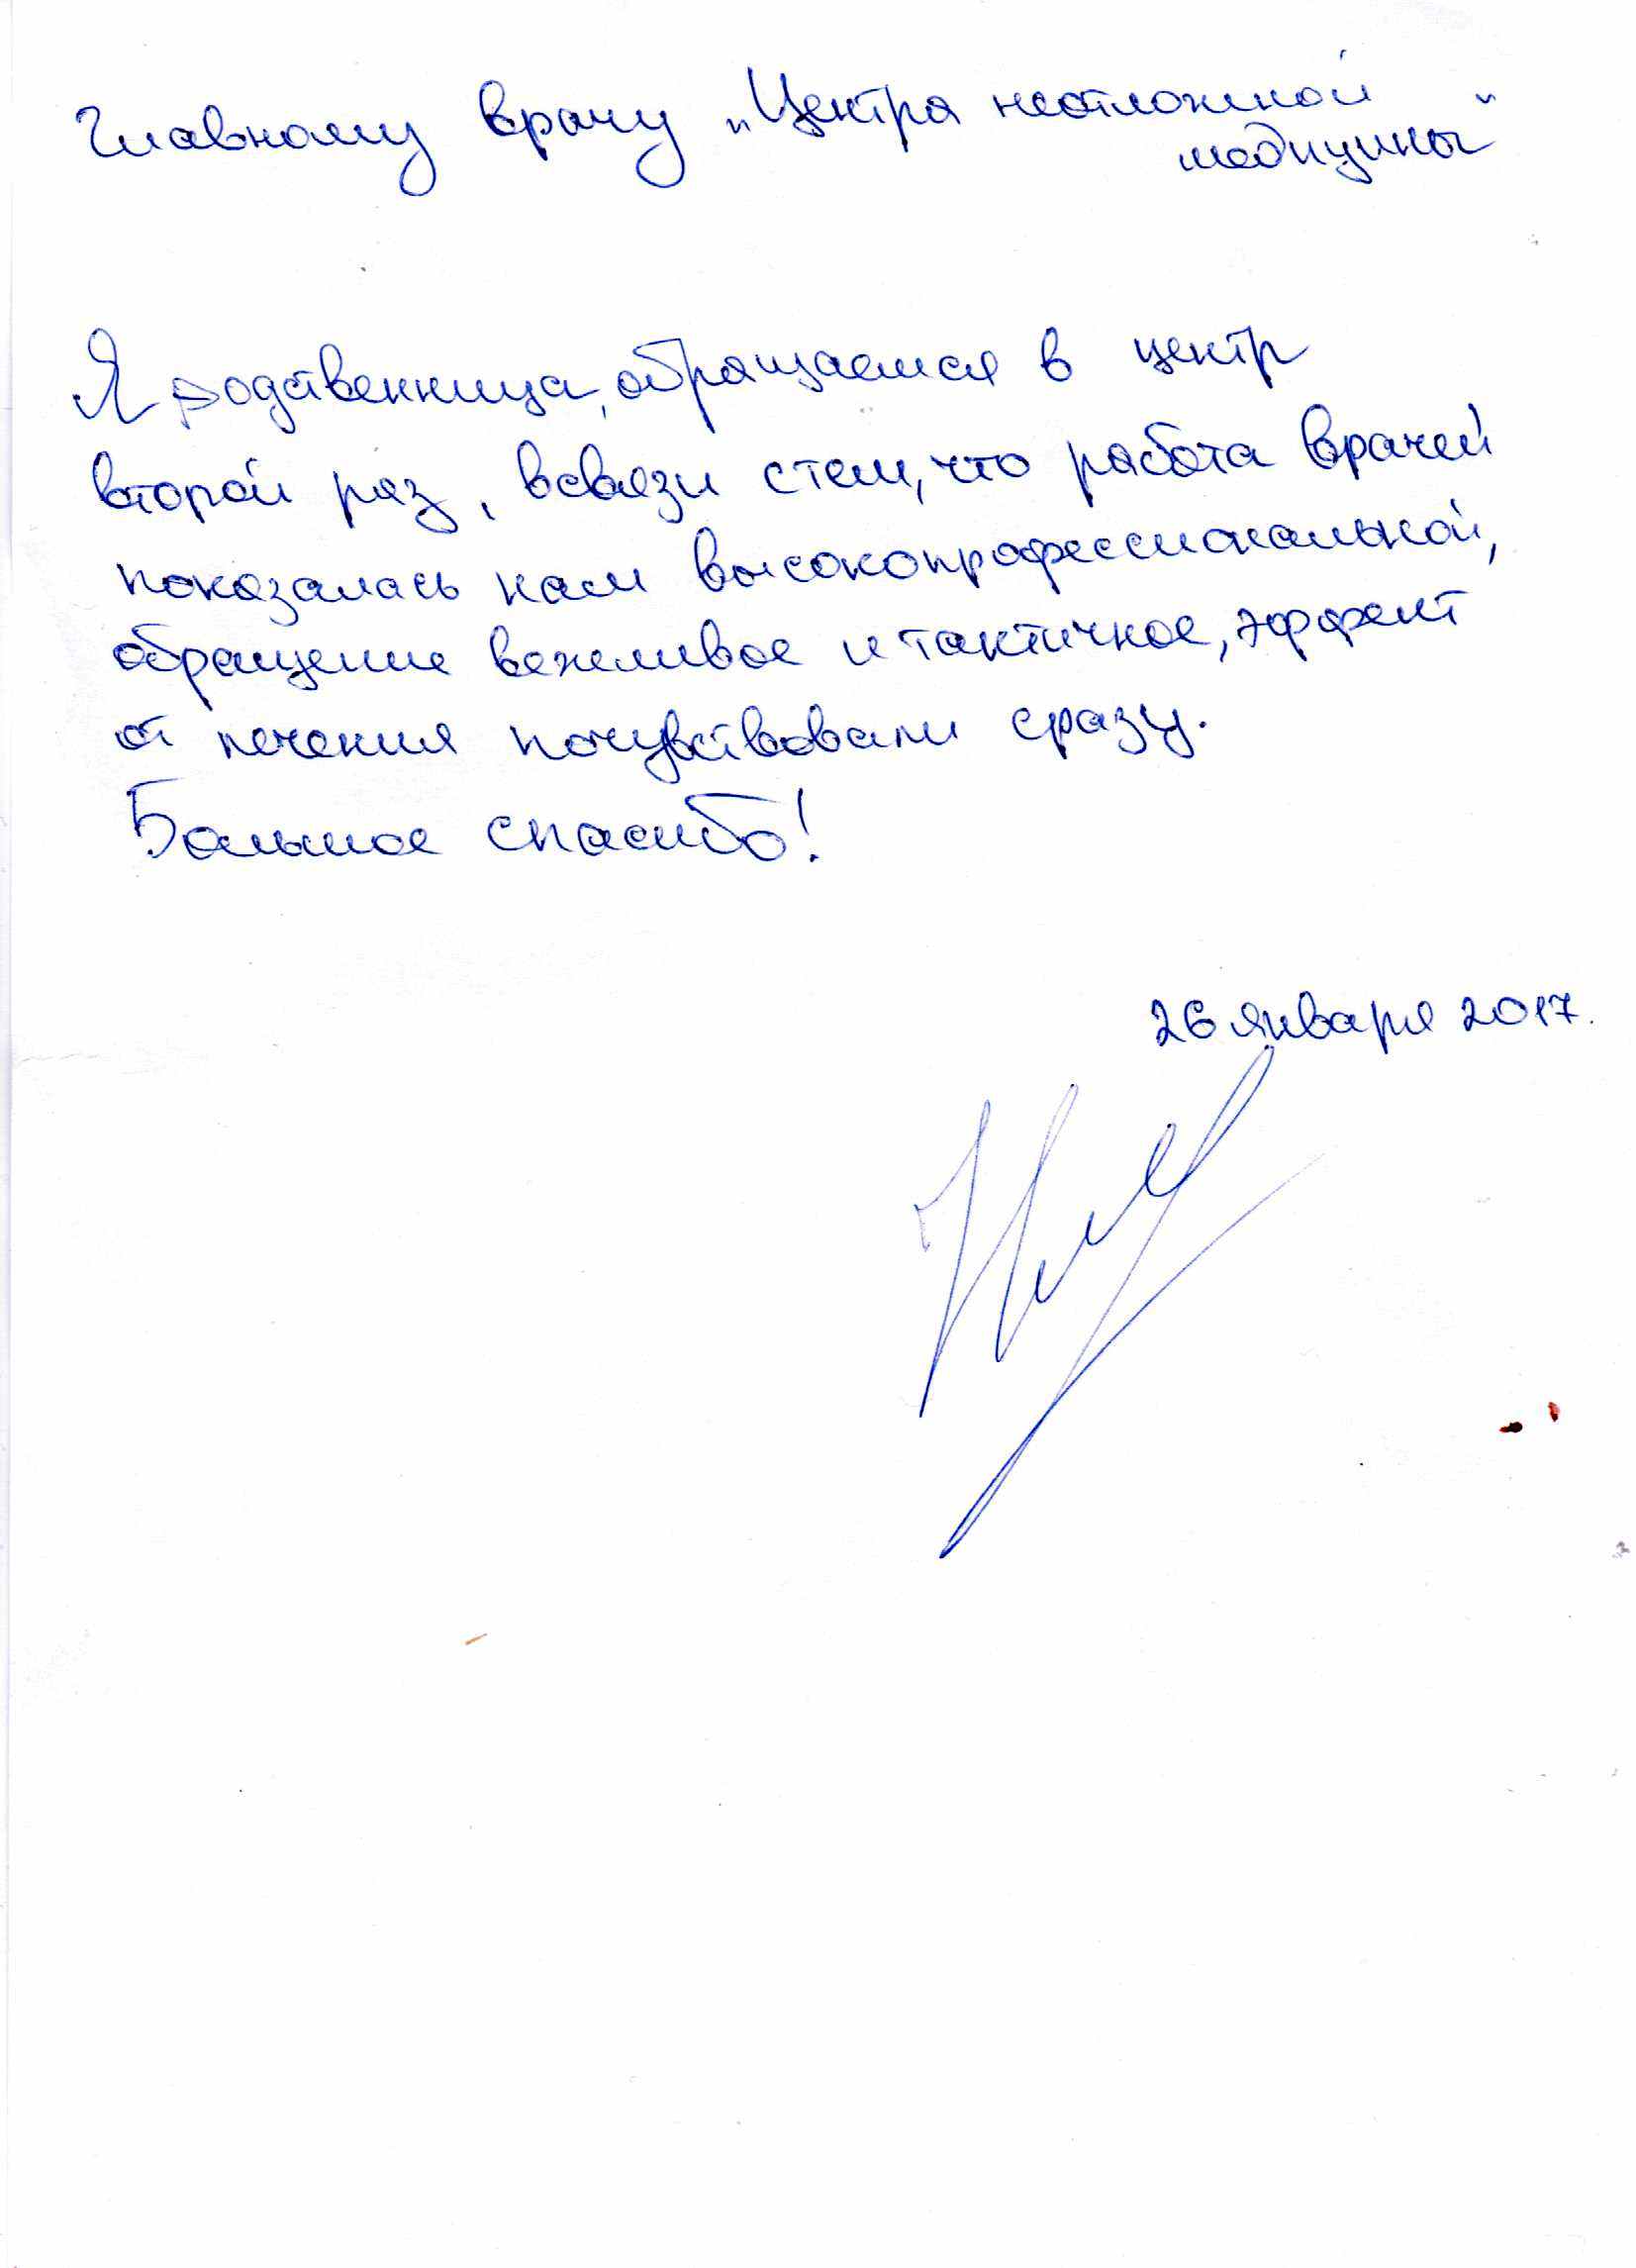 Главному врачу „Центра неотложной
медицины"
Я родственница, обращаемся в центр
второй раз, всвязи стем, что работа врачей
показалась нам высокопрофессиональной,
обращение вежливое и тактичное, эффект
от лечения почувствовали сразу.
Большое спасибо!
26 января 2017.